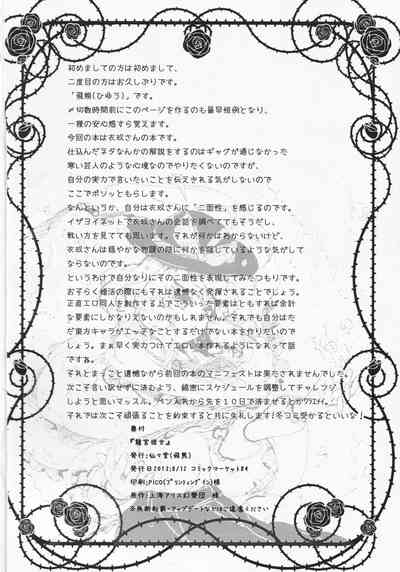 初めましての方は初めまして、
二度目の方はお久しぶりです。
「飛鼬(ひゆう)」です。
〆切数時間前にこのページを作るのも最早恒例となり、
一種の安心感すら覚えます。
今回の本は衣玖さんの本です。
仕込んだネタなんかの解説をするのはギャグが通じなかった
寒い芸人のような心境なのでやりたくないのですが、
自分の実力で言いたいことを伝えきれる気がしないので
ここでボソッともらします。
なんというか、自分は衣玖さんに「二面性」を感じるのです。
イザヨイネットで衣玖さんの会話を調べててもそうだし、
戦い方を見てても思います。それが何かはわからないけど、
衣玖さんは穏やかな物腰の陰に何かを隠しているような気がして
ならないのです。
というわけで自分なりにその二面性を表現してみたつもりです。
おそらく婚活の際にもそれは遺憾なく発揮されることでしょう。
正直エロ同人を創作する上でこういった要素はともすれば余計
な要素にしかなりえないのかもしれません。それでも自分はた
だ東方キャラがエッチなことするだけでない本を作りたいので
しょう。まぁ早く実力つけてエロい本作れるようになれって話
ですね。
それとまっこと遺憾ながら前回の本のマニフェストは果たされませんでした。
次こそ言い訳せずに済むよう、綿密にスケジュールを調整してチャレンジ
しようと思いマッスル。ペン入れから先を10日で済ませるとか
それでは次こそ頑張ることを約束すると共に失礼します!冬コミ受かるといいな!
奥付
発行日2013/8/12 コミックマーケット84
印刷:PICO(プリンティングイン)様
原作:上海アリス幻樂団 様
※無断転載・アップデートなどはご遠慮ください